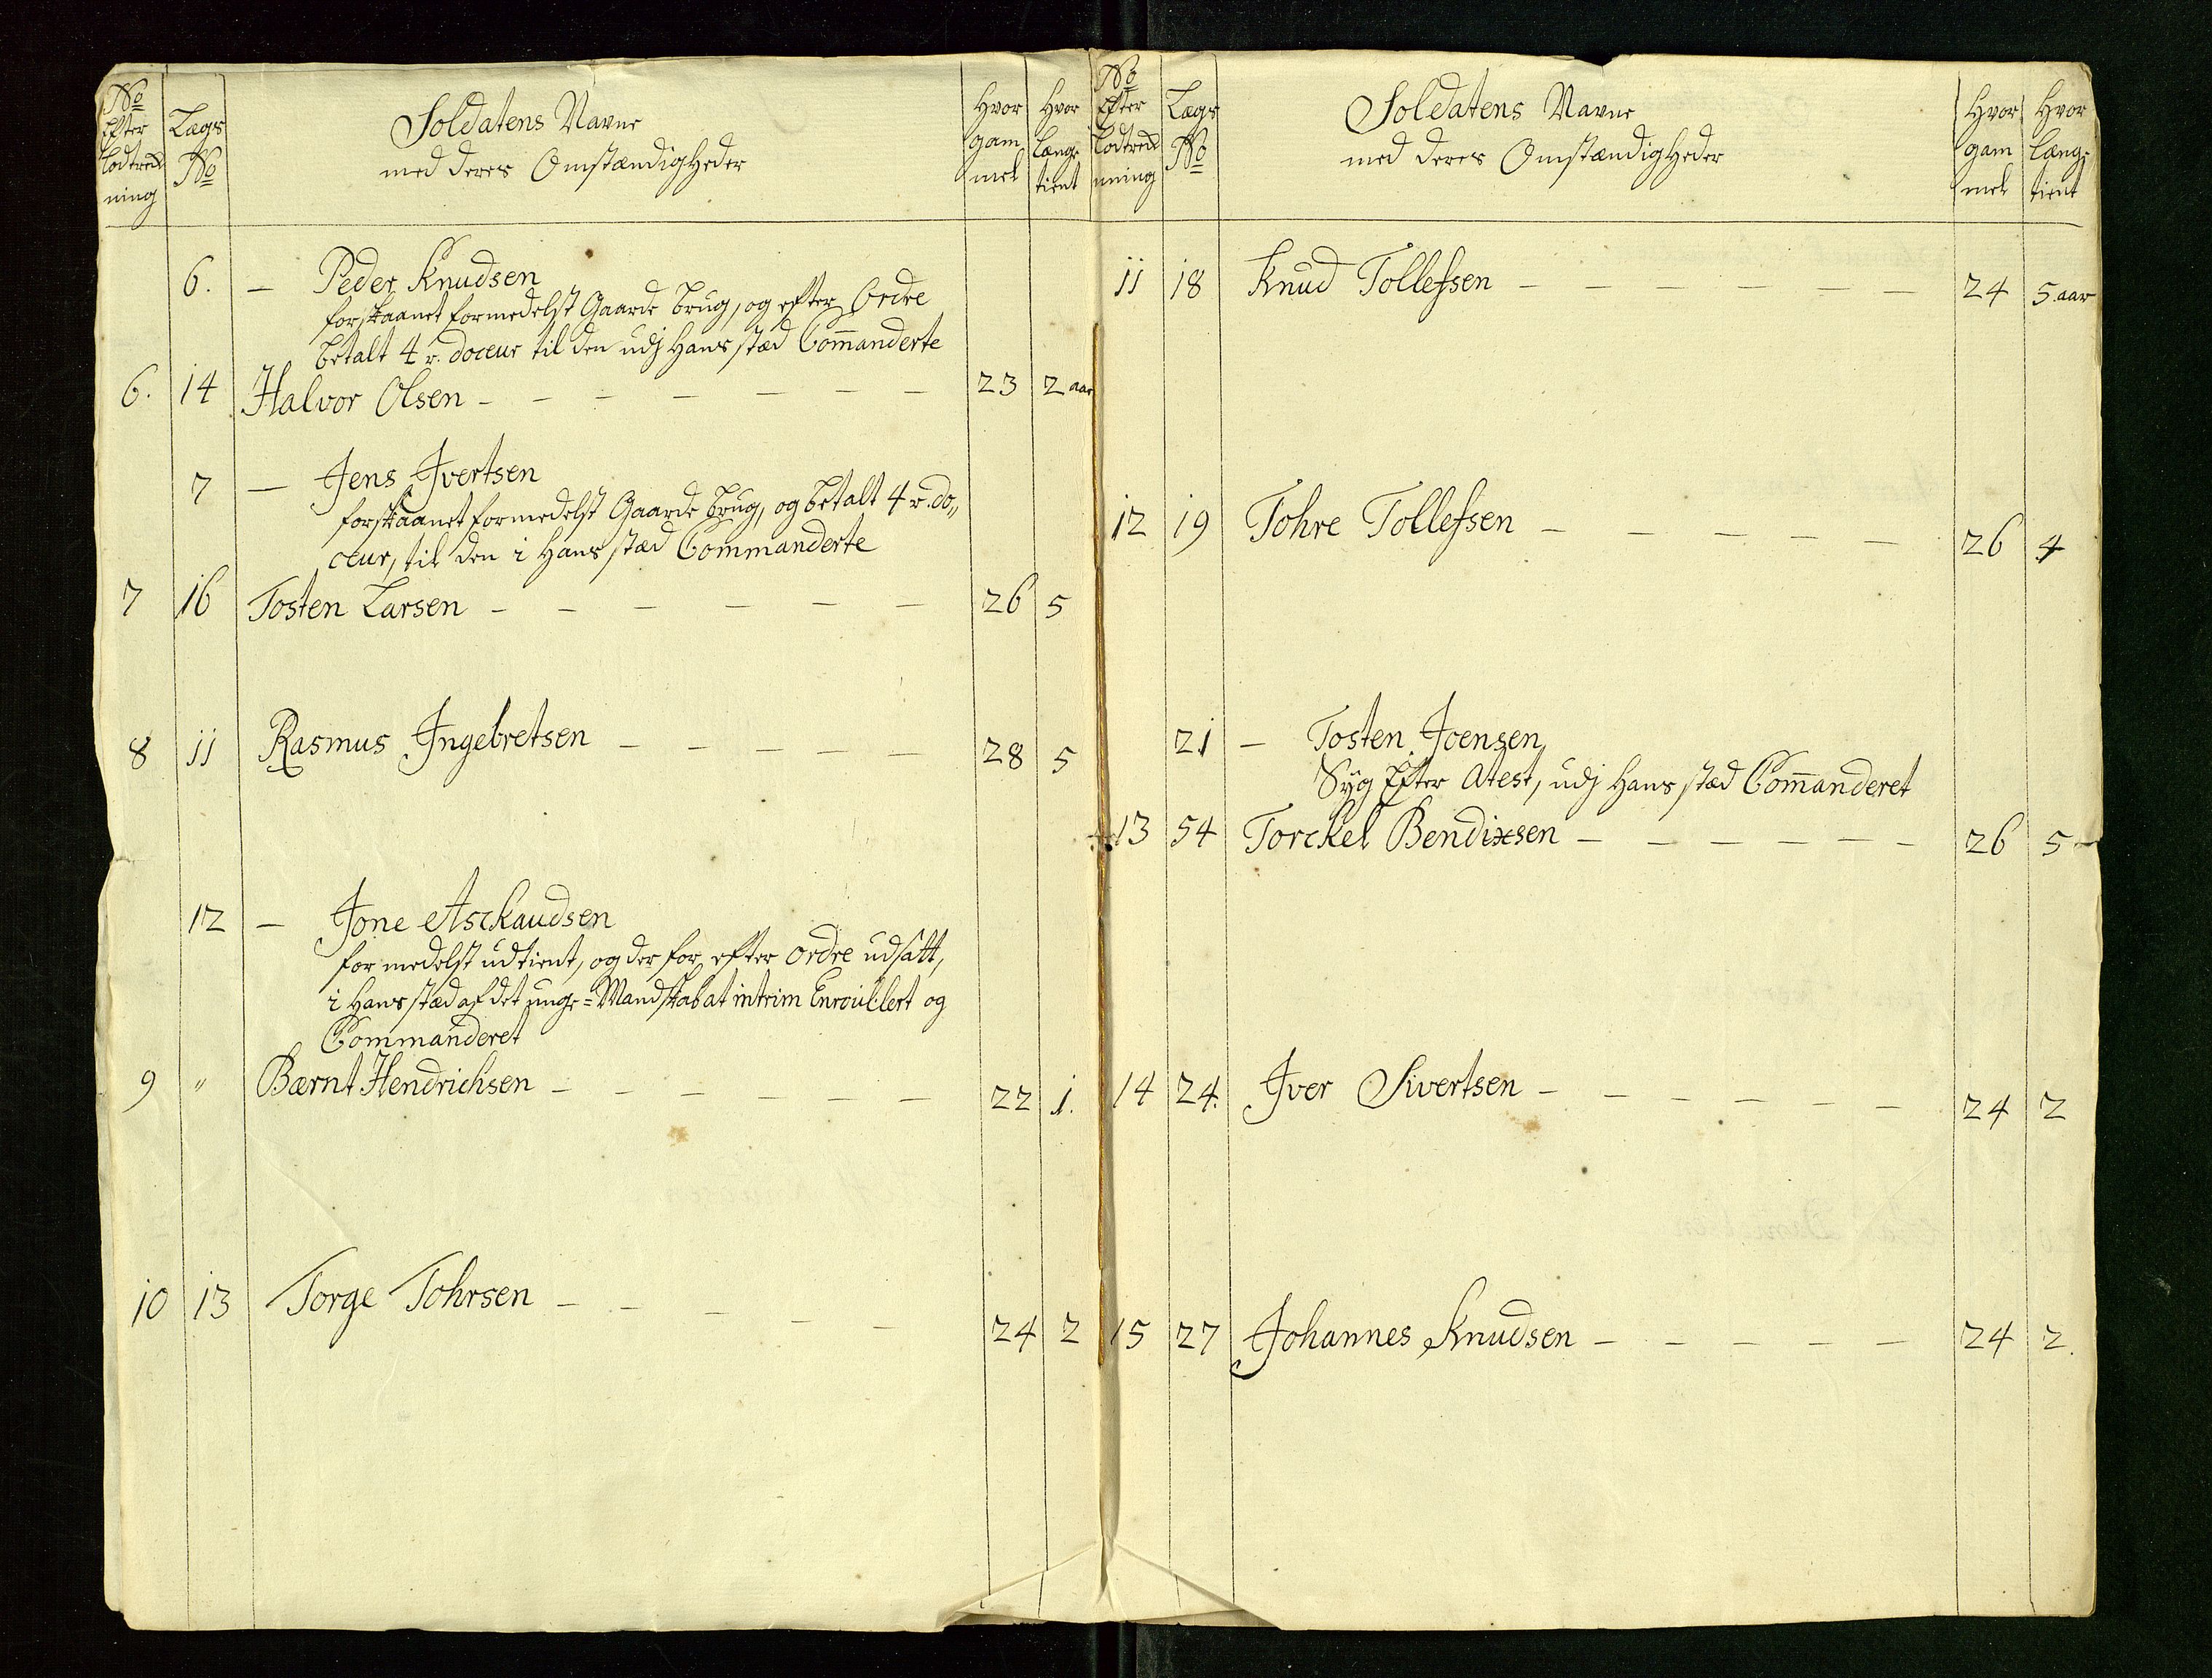 No
Efter
Lodtreck
ning
Lægs
No
Soldatens Navne
med deres Omstændigheder
Hvor
gam
mel
Hvor
længe
tient
6. — Peder Knudsen
forskaanet formedelst Gaarde brug, og efter Ordre
betalt 4 r. doceur til den udj Hans stæd Com̄anderte
6. 14 Halvor Olsen - - - - - - - 23 2 aar
7 — Jens Jvertsen
forskaanet formedelst Gaarde brug, og betalt 4 r. do„
ceur, til den i Hans stæd Commanderte
7 16 Tosten Larsen - - - - - - 26 5
8 11 Rasmus Jngebretsen - - - - - 28 5
12 — Jone Asckaudsen
for medelst udtient, og der for, efter Ordre udsatt,
i Hans stæd af det unge=Mandskab at intrim Enroullert og
Commanderet
9 " Bærnt Hendrichsen - - - - - - 22 1.
10 13 Torge Tohrsen - - - - - 24 2
No
Efter
Lodtreck
nning
Lægs
No
Soldatens Navne
med deres Omstændigheder
Hvor
gam
mel
Hvor
længe
tient
11 18 Knud Tollefsen - - - - - - 24 5 aar
12 19 Tohre Tollefsen - - - - - 26 4
21 — Tosten Joensen,
Syg Efter Atest, udj Hans stæd Com̄anderet
13 54 Torckel Bendixsen - - - - - - 26 5 -
14 24. Jver Sivertsen - - - - - - 24 2
15 27 Johannes Knudsen - - - - - 24 2.